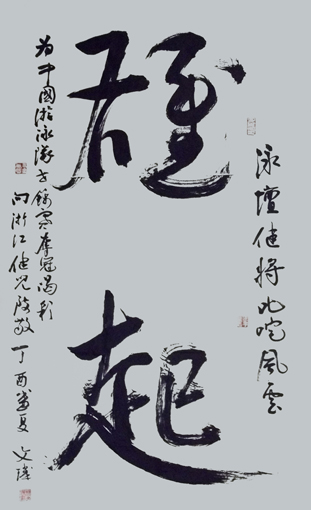 泳壇健將叱咤風雲
雄起
为中國游泳隊奪冠喝彩
向浙江健兒致敬 丁酉盛夏 文